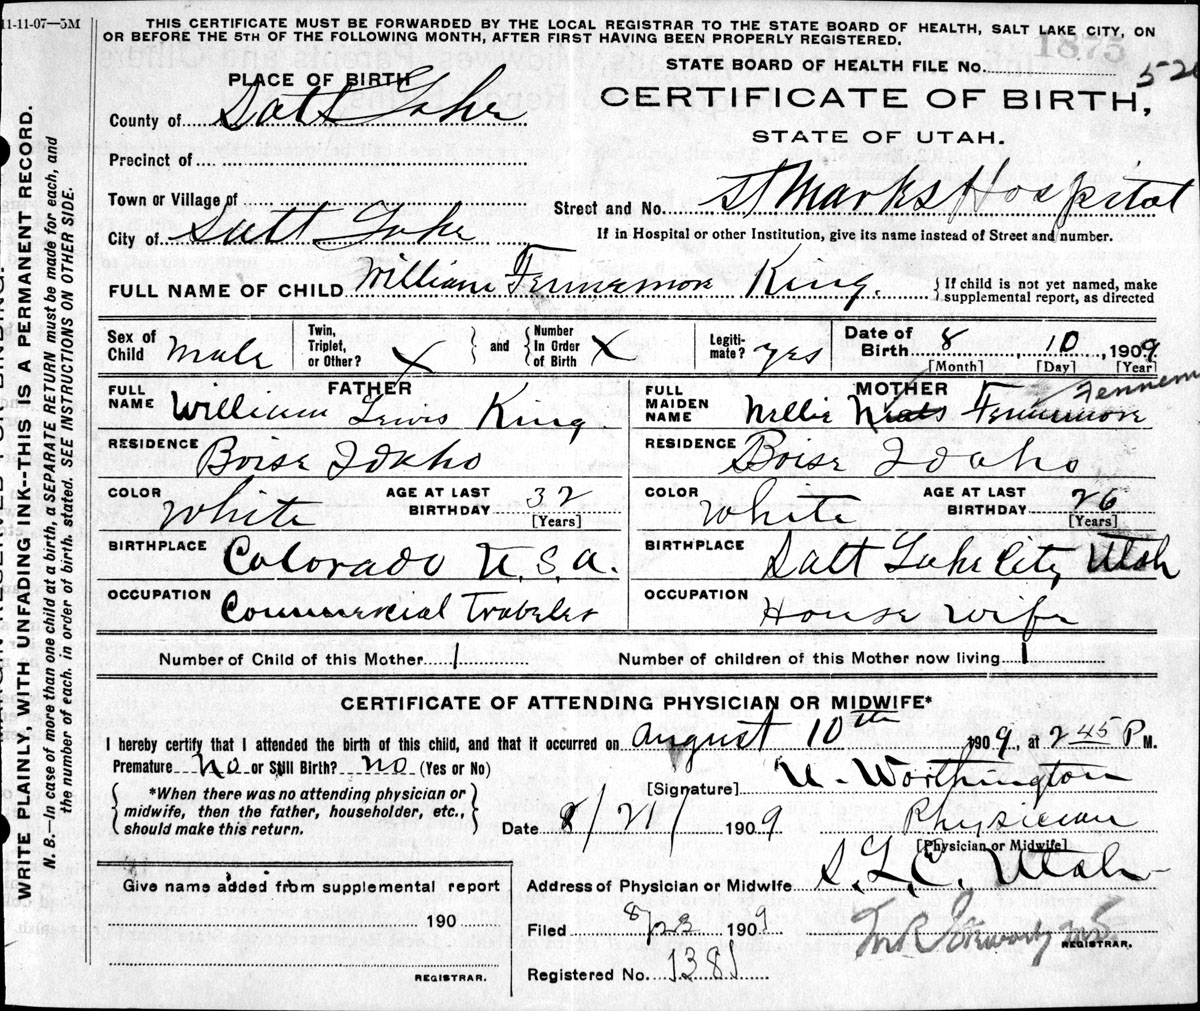 11-11-07—5M
THIS CERTIFICATE MUST BE FORWARDED BY THE LOCAL REGISTRAR TO THE STATE BOARD OF HEALTH, SALT LAKE CITY, ON
OR BEFORE THE 5TH OF THE FOLLOWING MONTH, AFTER FIRST HAVING BEEN PROPERLY REGISTERED.
1875
STATE BOARD OF HEALTH FILE No.
CERTIFICATE OF BIRTH,
STATE OF UTAH.
PLACE OF BIRTH
County of Salt Lake
Precinct of
Town or Village of
City of Salt Lake
Street and No. St Marks Hospital
If in Hospital or other Institution, give its name instead of Street and number.
FULL NAME OF CHILD William Fennemore King. { If child is not yet named, make supplemental report, as directed
Sex of Child Male Twin, Triplet, or Other? X } and { Number In Order of Birth X Legiti- mate? yes Date of Birth 8, 10, 1909
[Month] [Day] [Year]
FATHER
FULL NAME William Lewis King
RESIDENCE Boise Idaho
COLOR White AGE AT LAST BIRTHDAY 32
[Years]
BIRTHPLACE Colorado U.S.A.
OCCUPATION Commercial Traveler
MOTHER
FULL MAIDEN NAME Nellie Fennemore
RESIDENCE Boise Idaho
COLOR White AGE AT LAST BIRTHDAY 26
[Years]
BIRTHPLACE Salt Lake City, Utah
OCCUPATION House wife
Number of Child of this Mother 1 Number of children of this Mother now living 1
CERTIFICATE OF ATTENDING PHYSICIAN OR MIDWIFE*
I hereby certify that I attended the birth of this child, and that it occurred on August 10th 1909, at 2 45 P M.
Premature No or Still Birth? no (Yes or No)
[Signature] U. Worthington
*When there was no attending physician or
midwife, then the father, householder, etc.,
should make this return.
Date 8/21/ 1909 Physician
[Physician or Midwife]
Address of Physician or Midwife S.L.C. Utah
Filed 8/22 1909
REGISTRAR.
Registered No. 1381
Give name added from supplemental report
190
REGISTRAR.
WRITE PLAINLY, WITH UNFADING INK--THIS IS A PERMANENT RECORD.
N. B.—In case of more than one child at a birth, a SEPARATE RETURN must be made for each, and
the number of each, in order of birth, stated. SEE INSTRUCTIONS ON OTHER SIDE.